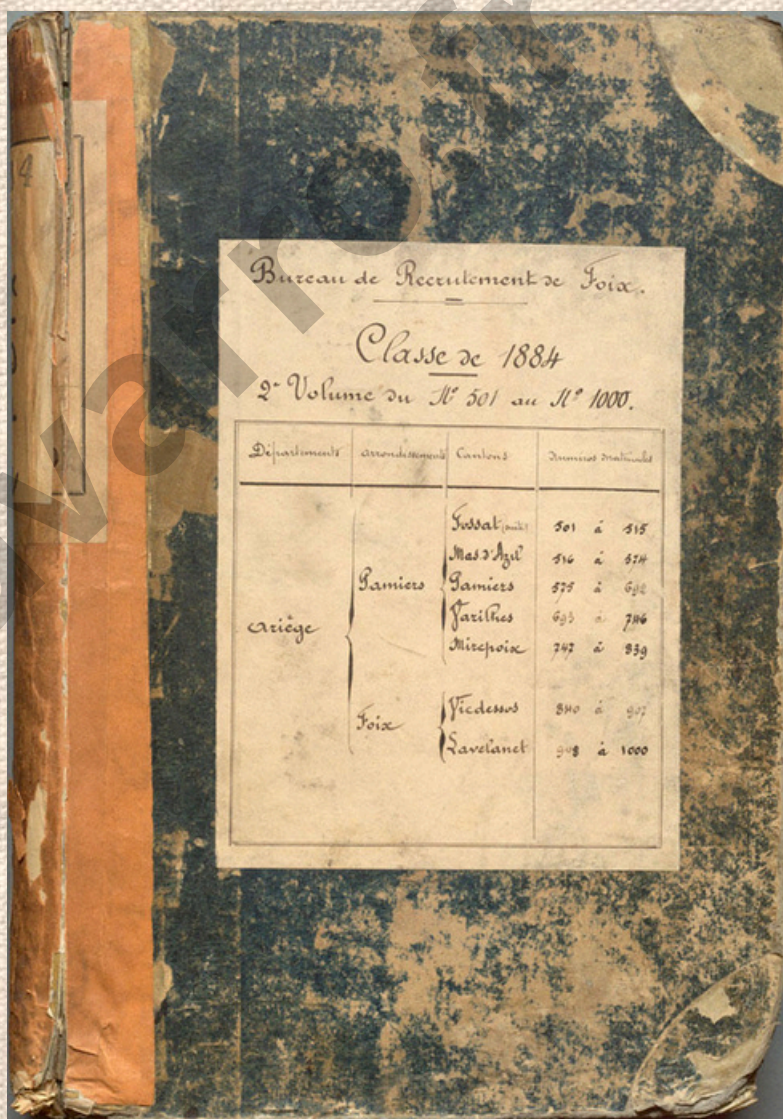 Bureau de Recrutement de Foix.
Classe de 1884
2e Volume du No 501 au No 1000.
Départements arrondissements Cantons Numéros Matricules
Fossat (suite) 501 à 515
Mas-d'Azil 516 à 574
Pamiers Pamiers 575 à 692
Varilhes 693 à 746
ariège
Mirepoix 747 à 839
Vicdessos 840 à 907
Foix
Lavelanet 908 à 1000
4